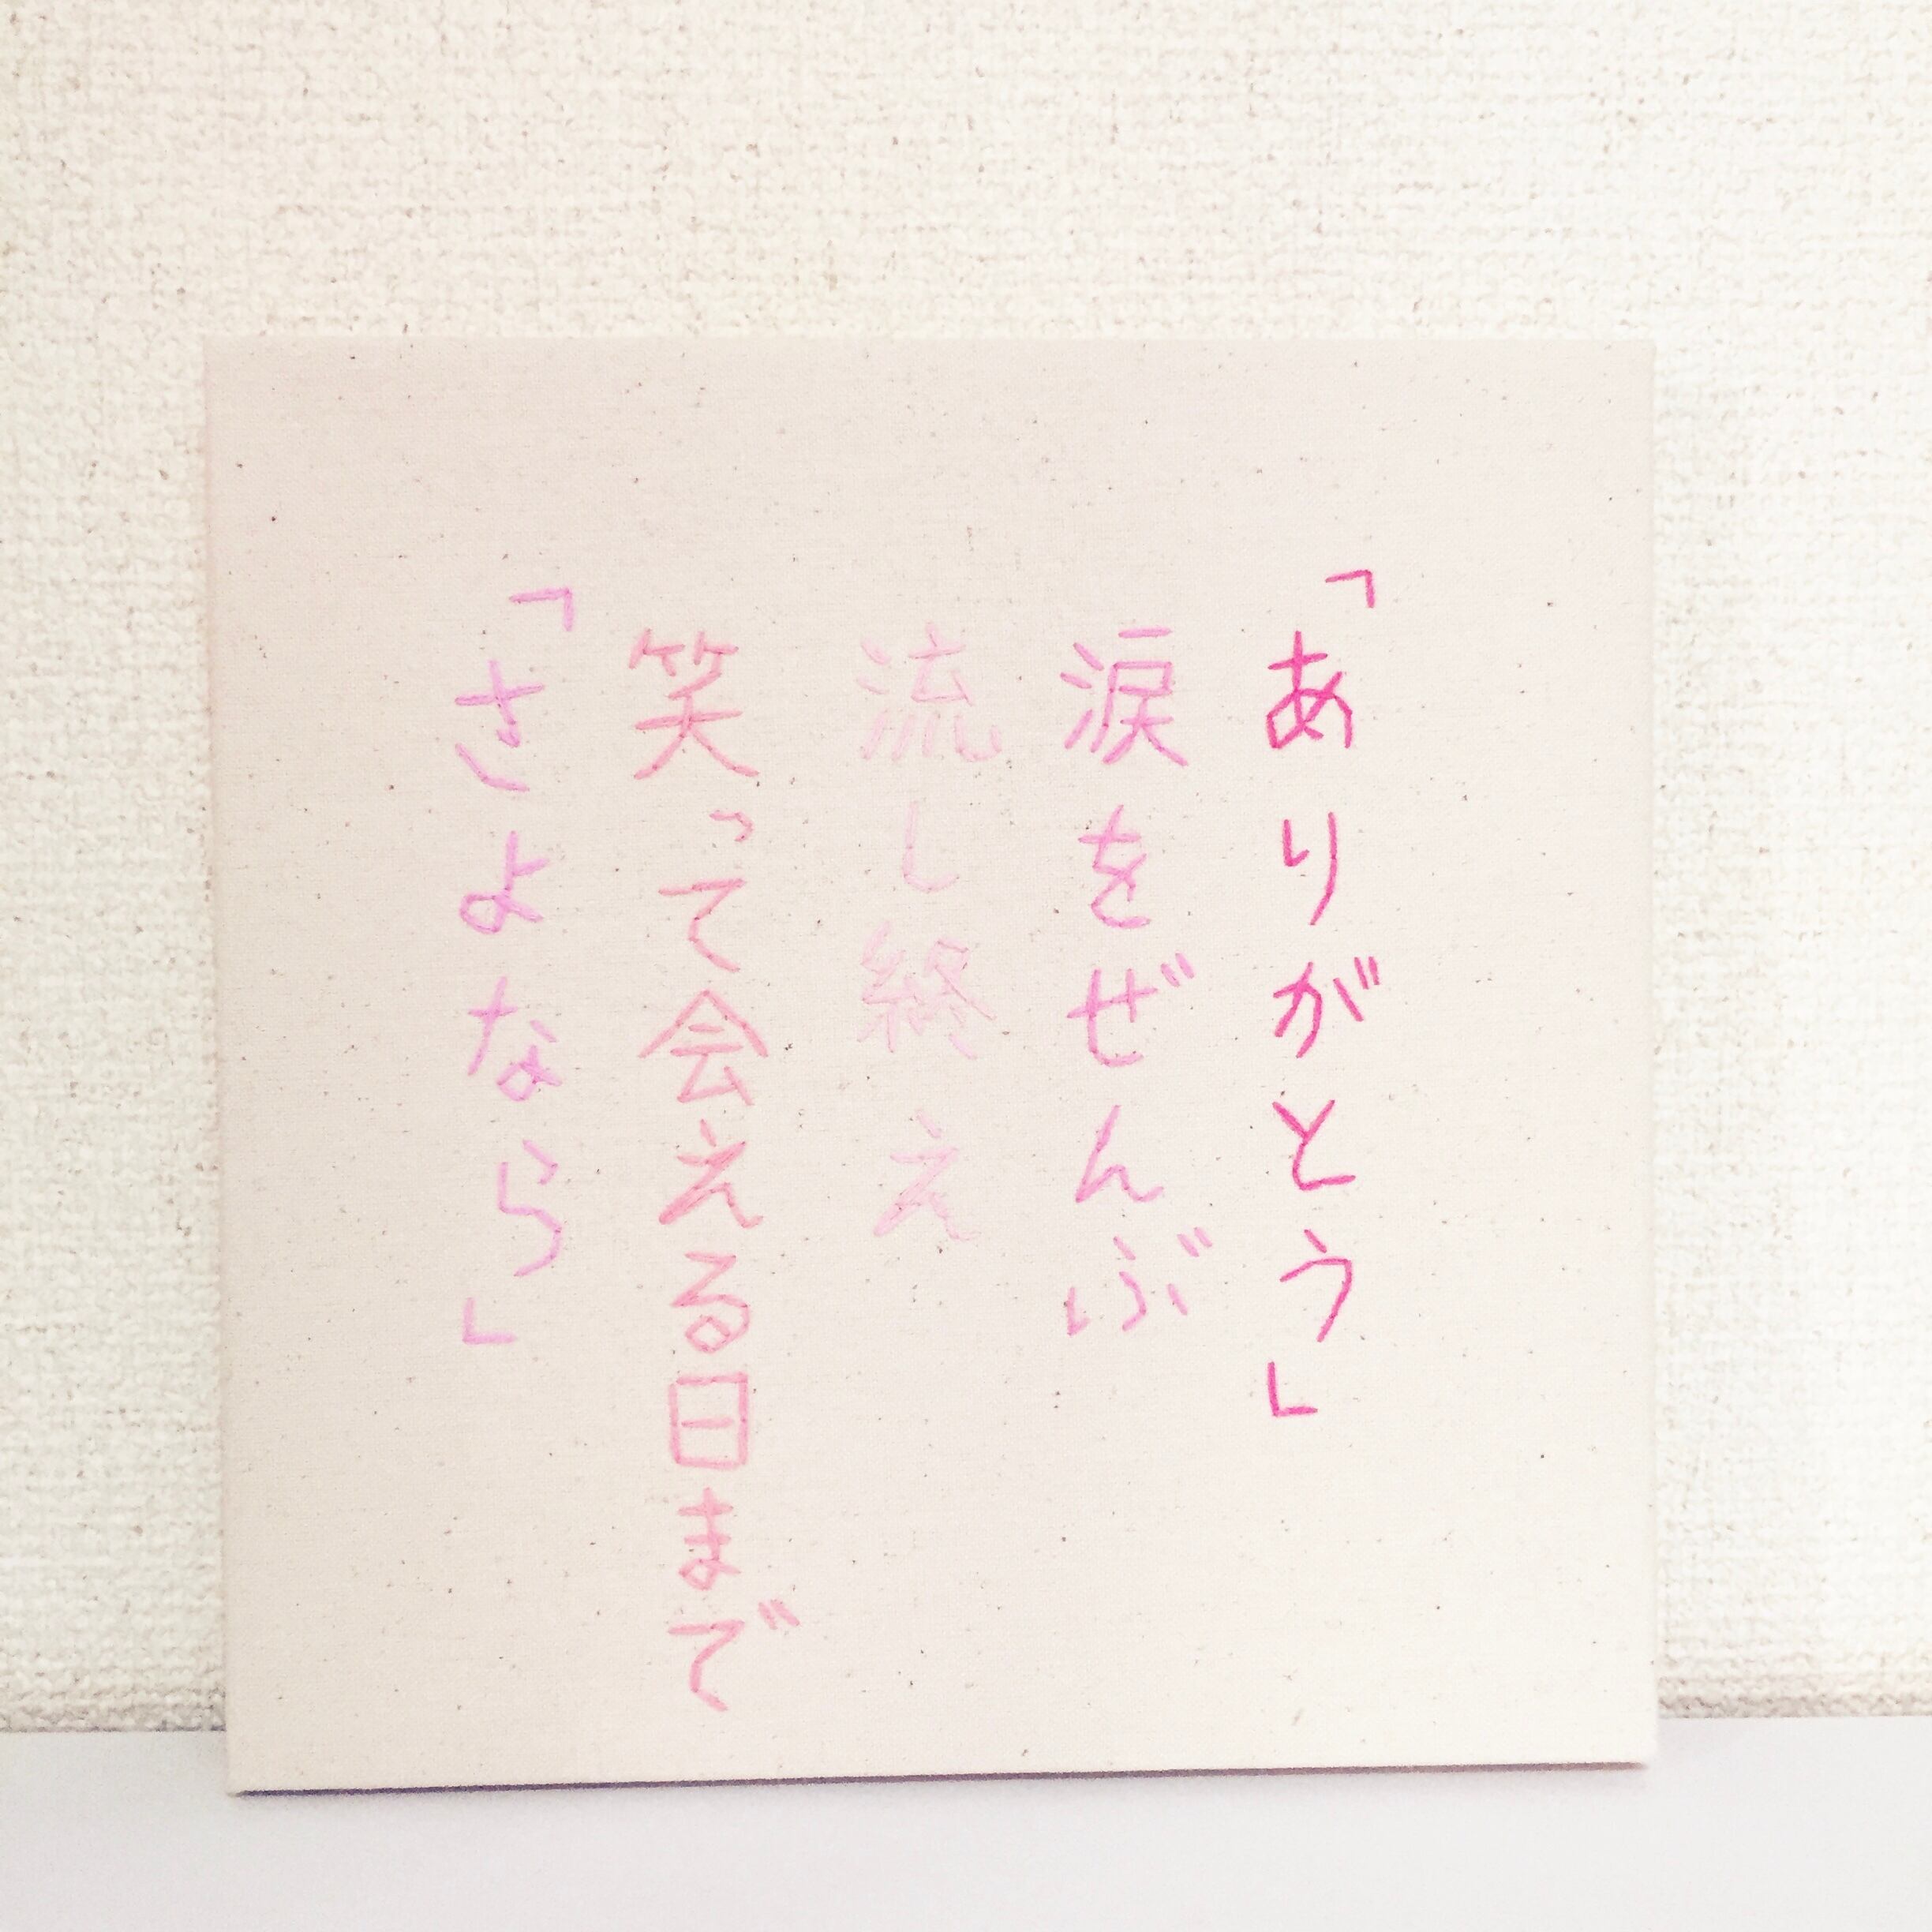 「ありがとう」
涙をぜんぶ
流し終え
笑って会える日まで
「さよなら」